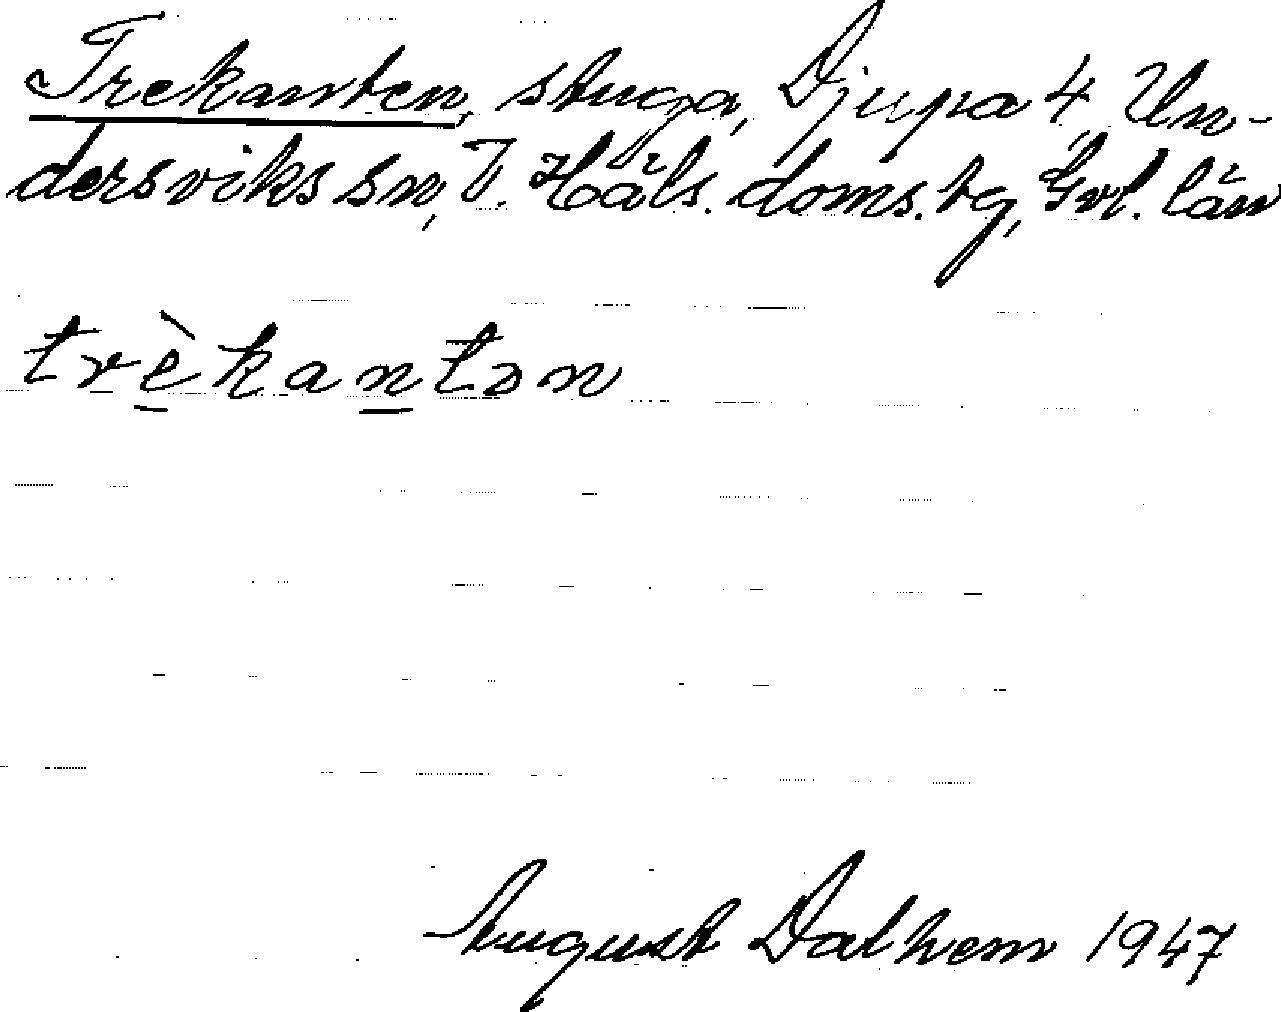 Trekanten, stuga, Djupa 4, Un-
dersviks sn, V. Häls. doms. tg, Gvl. län
trèkantən
August Dalhem 1947